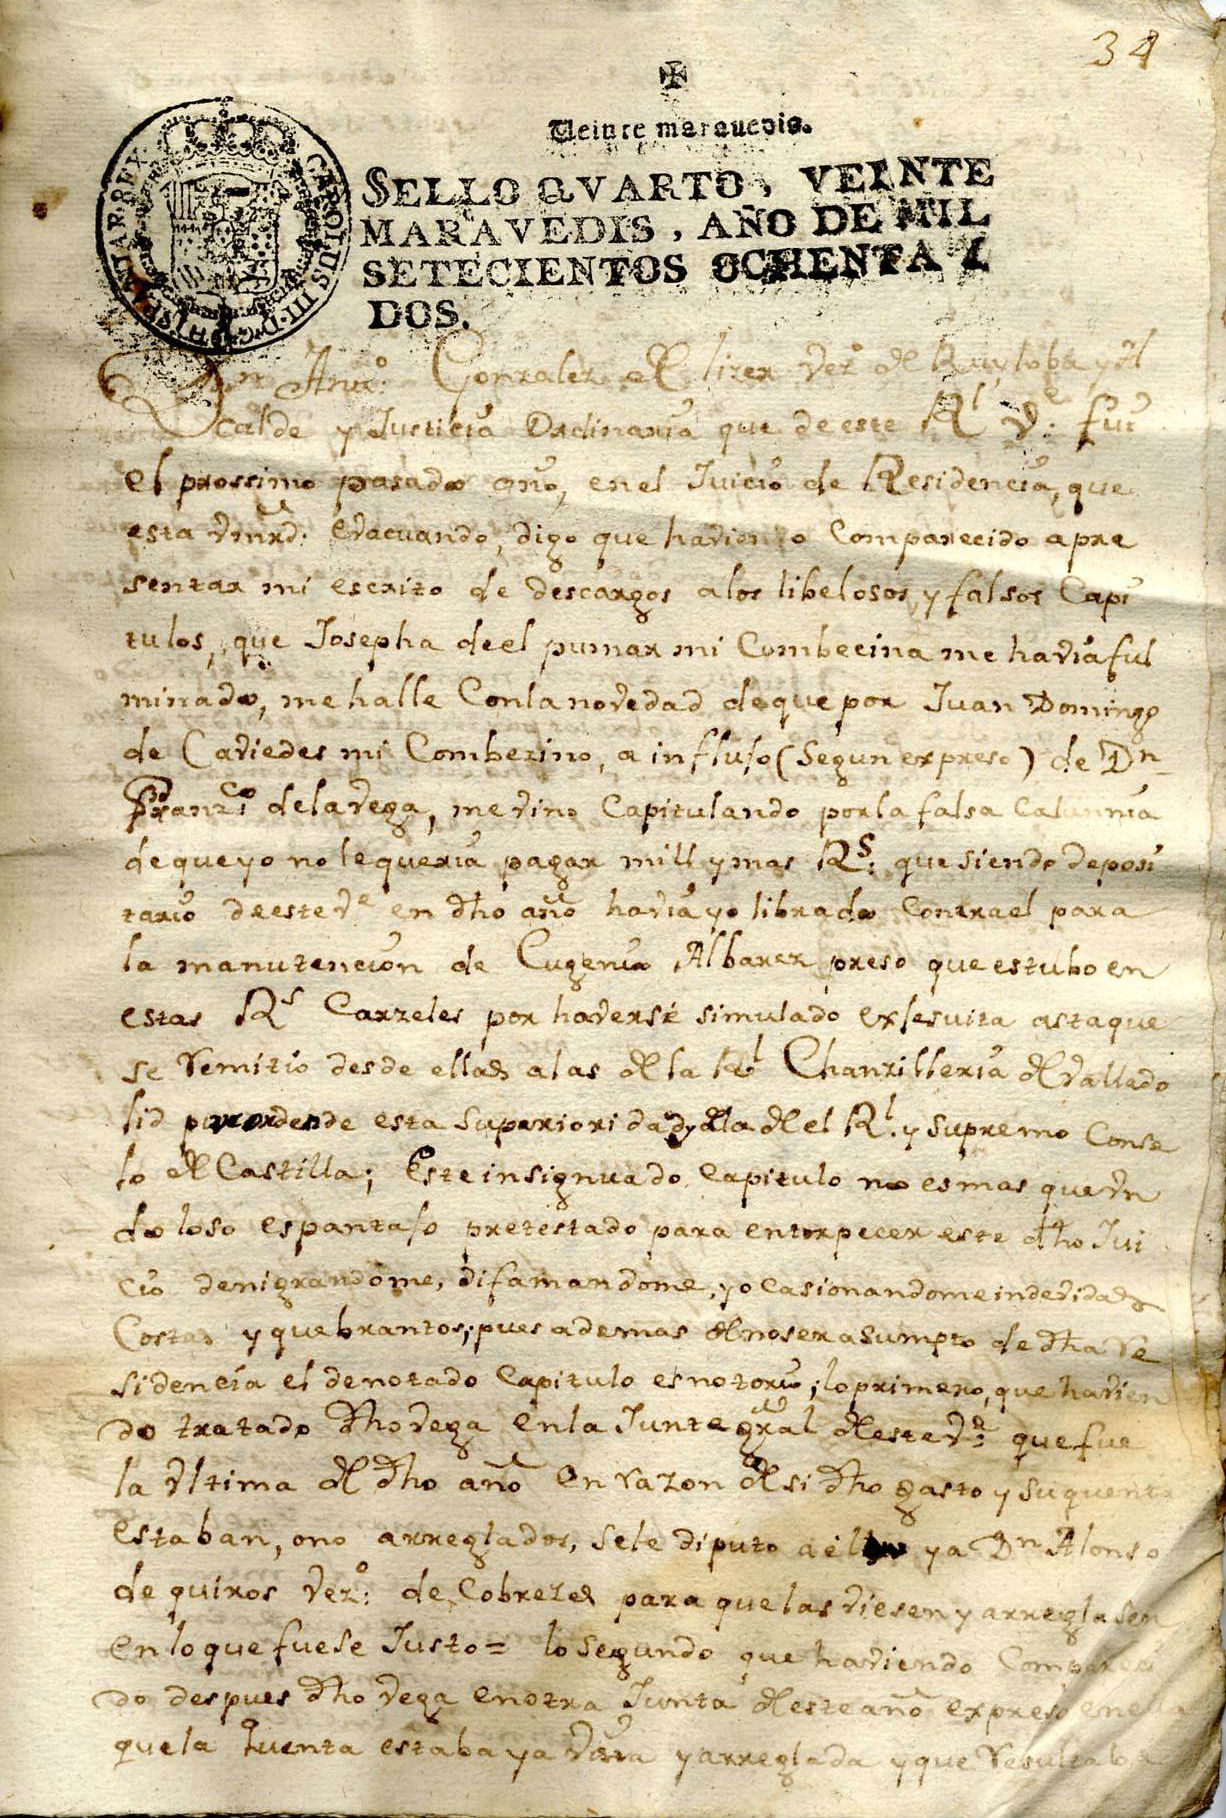 34
Veinte maravedis.
SELLO QVARTO, VEINTE
MARAVEDIS, AÑO DE MIL
SETECIENTOS OCHENTA Y
DOS.
CAROLUS III D G HISPANIAR REX
Dn Antto. Gonzalez de Lizer vezo. de Ruyloba y Al
calde y Justicia Ordinaria que de este Rl Ve. fui
el prossimo pasado año, en el Juicio de Residencia, que
esta Vmrd. evacuando, digo que haviendo Comparecido a pre
sentar mi escrito de descargos a los libelosos, y falsos Capi
tulos, que Josepha de el pumar mi Combecina me havia ful
minado, me halle Con la novedad de que por Juan Domingo
de Caviedes mi Combezino, a influso (Segun expreso) de Dn
Franzco de la vega, me vino Capitulando por la falsa Calumnia
de que yo no le queria pagar mill y mas Rs. que siendo deposi
tario de este Ve en dho año havia yo librado Contra el para
la manutencion de Eugenio Albarez preso que estubo en
estas Rs Carzeles por haverse simulado exJesuita asta que
se remitio desde ellas a las de la Rl Chanzilleria de Vallado
lid por orden de esta superioridad y de la de el Rl. y supremo Conse
Jo de Castilla; Este insignuado Capitulo no es mas que vn
doloso espantaJo pretestado para entorpecer este dho Jui
cio denigrandome, difamandome, y ocasionandome indevidas
Costas y quebrantos; pues ademas de no ser asumpto de dha Re
sidencia el denotado Capitulo es notorio; lo primero, que havien
do tratado dho vega en la Junta gral de este Ve. que fue
la vltima de dho año en razon de si dho gasto y su quenta
estaban, o no arreglados, se le diputo a el y a Dn Alonso
de quiros vezo. de Cobrezes para que las viesen y arreglasen
en lo que fuese Justo = lo segundo que haviendo Compareci
do despues dho vega en otra Junta de este año expreso en ella
que la quenta estaba ya vista y arreglada y que resultaba